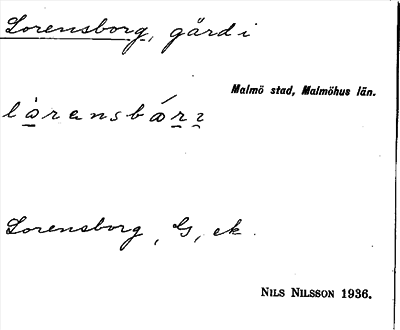 Lorensborg, gård i
Malmö stad, Malmöhus län.
Lorensborg, G, ek.
NILS NILSSON 1936.